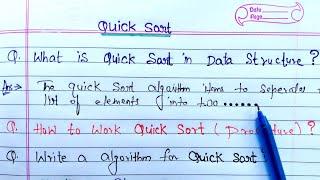 Date
Page
Quick Sort
Q. What is Quick Sort in Data Structure ?
Ans → The quick Sort algorithm to Seperate
list of elements into two ......
Q. How to Work Quick Sort ( Procedure ) ?
Q. Write a algorithm for Quick Sort